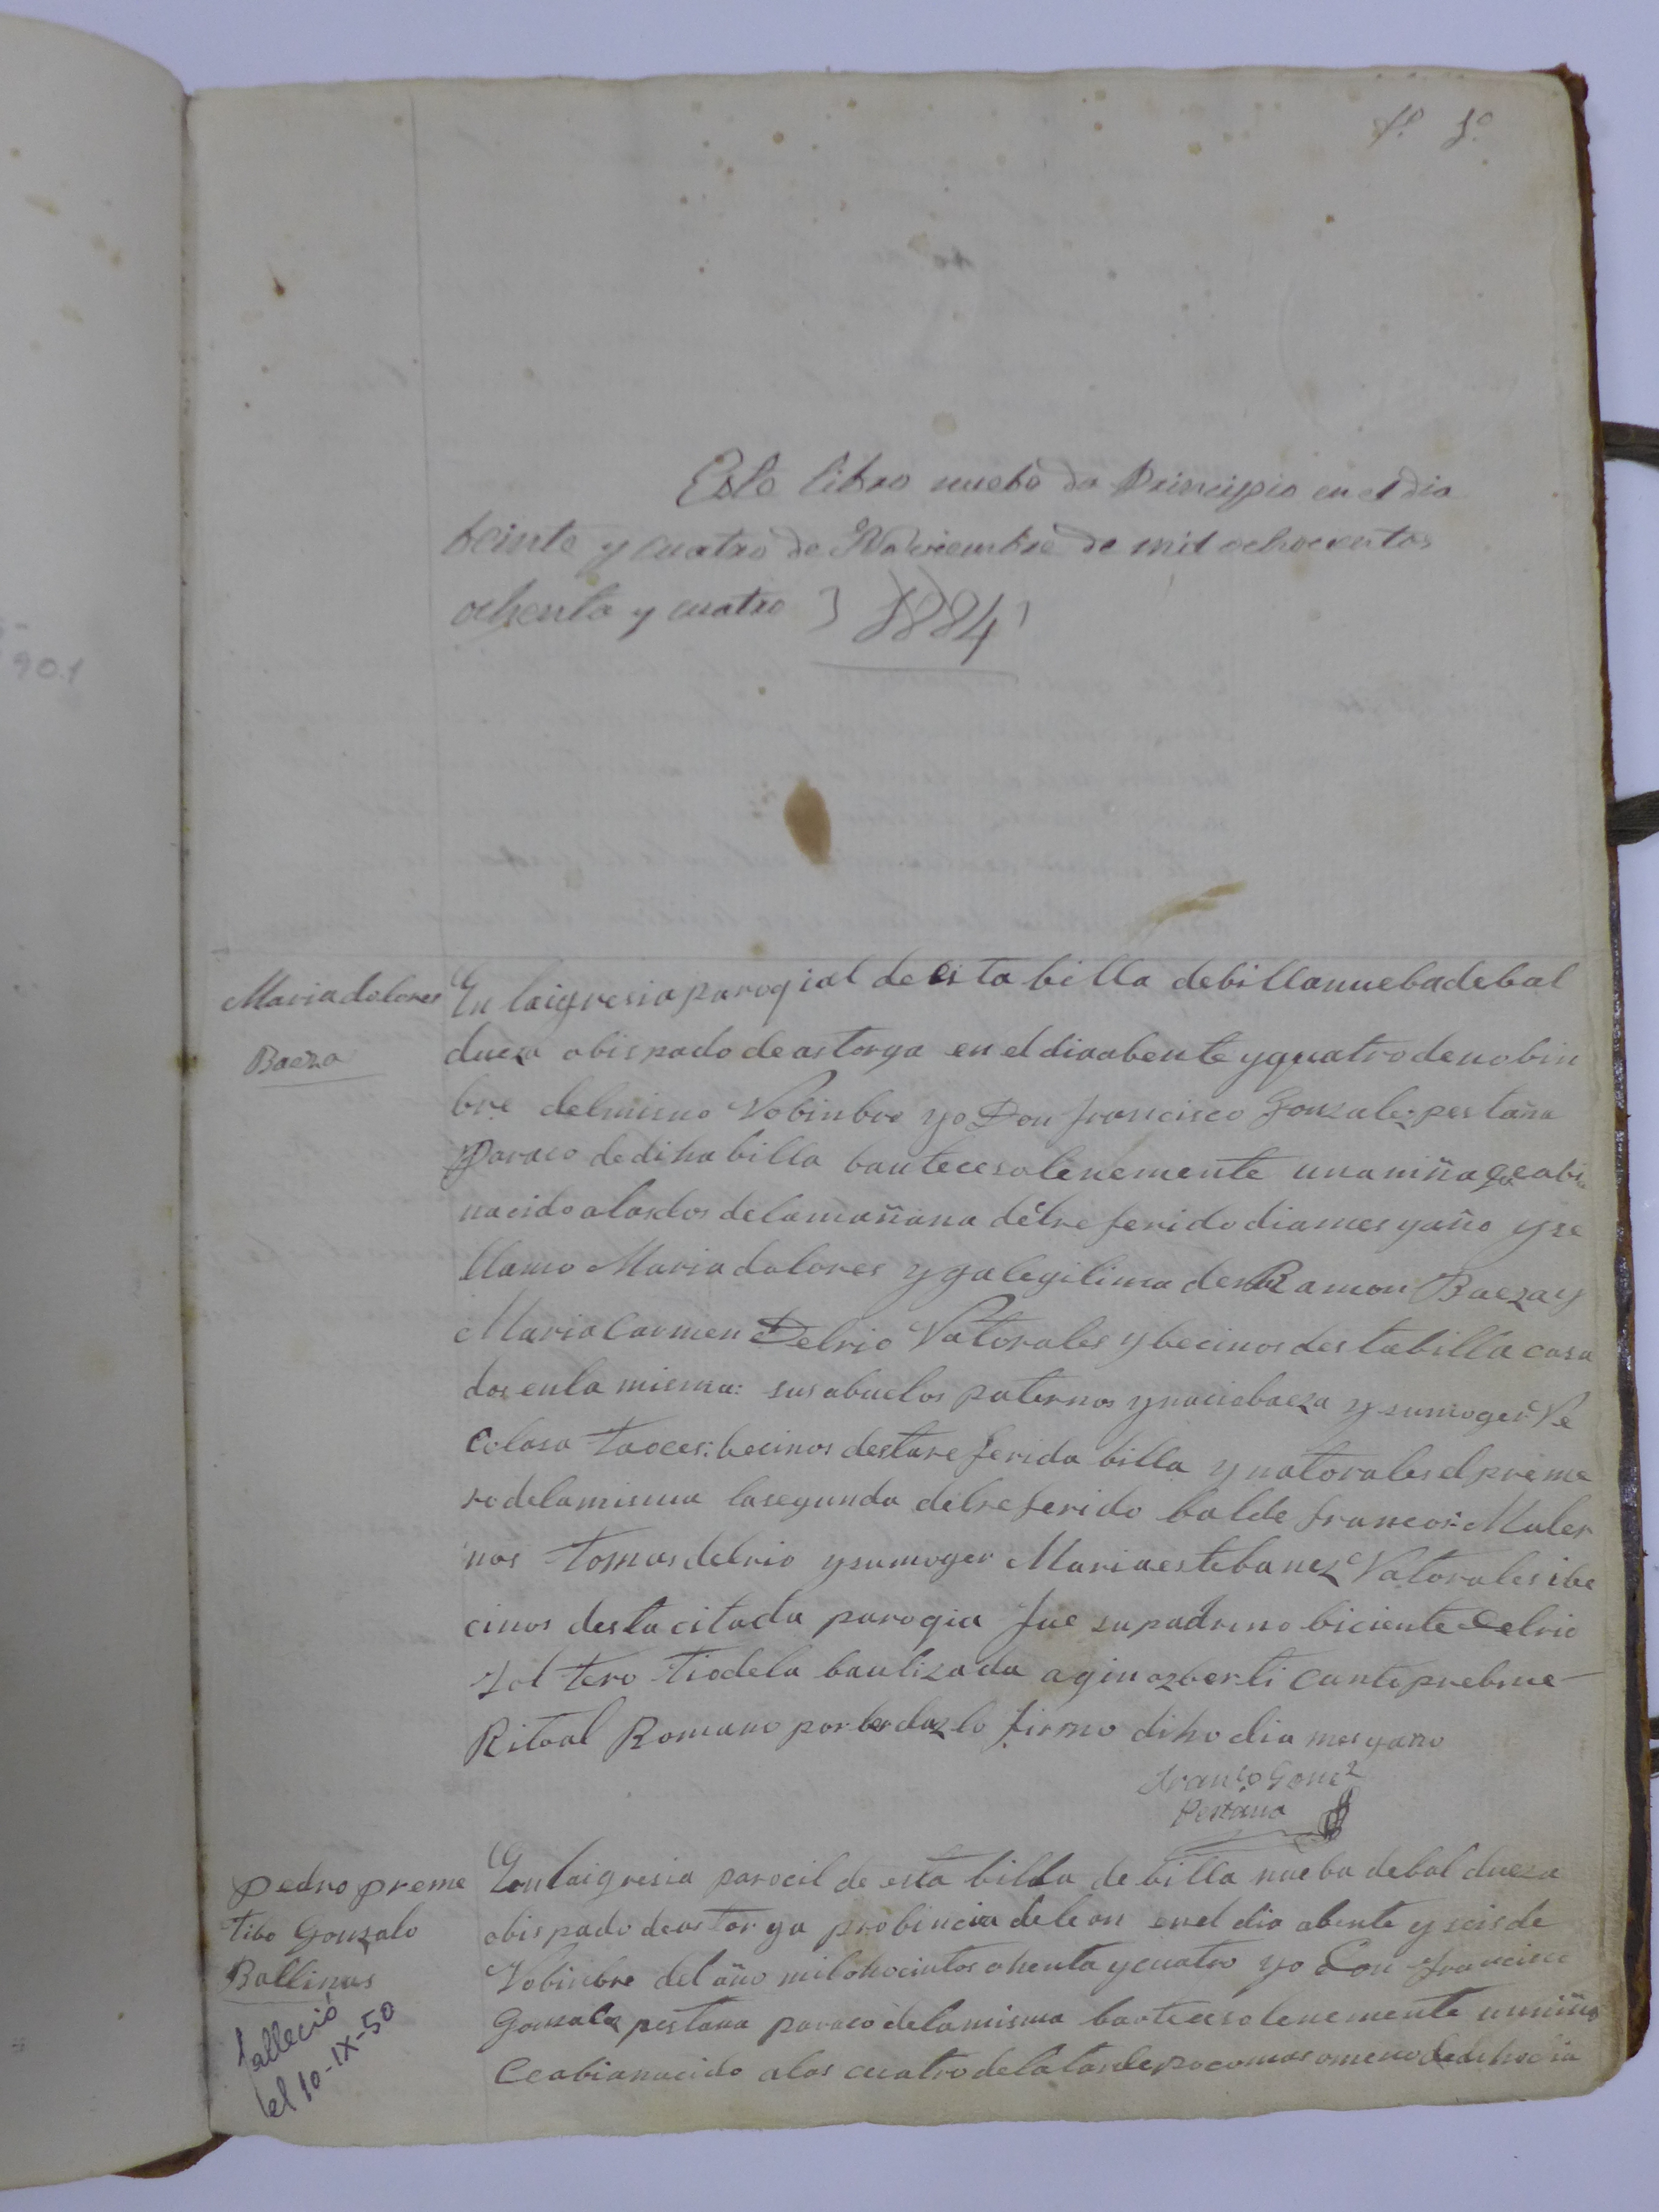 fº 1º
Este libro nuebo da Principio en el dia
beinte y cuatro de Noviembre de mil ochocientos
ochenta y cuatro 1884
Maria dolores
Baeza
En la igresia paroqial de esta billa de billanueba de bal
dueza obispado de astorga en el dia abente y quatro de nobin
bre del mismo Nobinbre yo Don francisco Gonzalez pestaña
Paraco de diha billa bautece solenemente una niña qe abia
nacido a las dos de la mañana del referido dia mes y año y se
llamo Maria dolores yga legitima de Ramon Baeza y
Maria Carmen Delrio Natorales y becinos desta billa casa
dos en la misma: sus abuelos paternos ynacio baeza y sumoger Ne
colasa taoces: becinos desta referida billa y natorales el preme
ro de la misma la segunda del referido balde francos: Mater
nos tomas delrio y sumoger Maria estebanez Natorales i be
cinos desta citada parogia fue su padrino biciente Delrio
Soltero tio de la bautizada a qin azberti cante prebine
Ritoal Romano por berdaz lo firmo diho dia mes y año
Franco Gonez
Pestaña
pedro preme
tibo Gonzalo
Ballinas
falleció
el 10-IX-50
En la igresia parocil de esta billa de billa nueba de bal dueza
obispado de astorga probincia de leon en el dia abente y seis de
Nobinbre del año mil ohocintos ohenta y cuatro yo Don francisco
Gonzalez pestana paraco de la misma bautece solenemente un niño
Ce abia nacido a las cuatro de la tarde poco mas o meno de diho dia